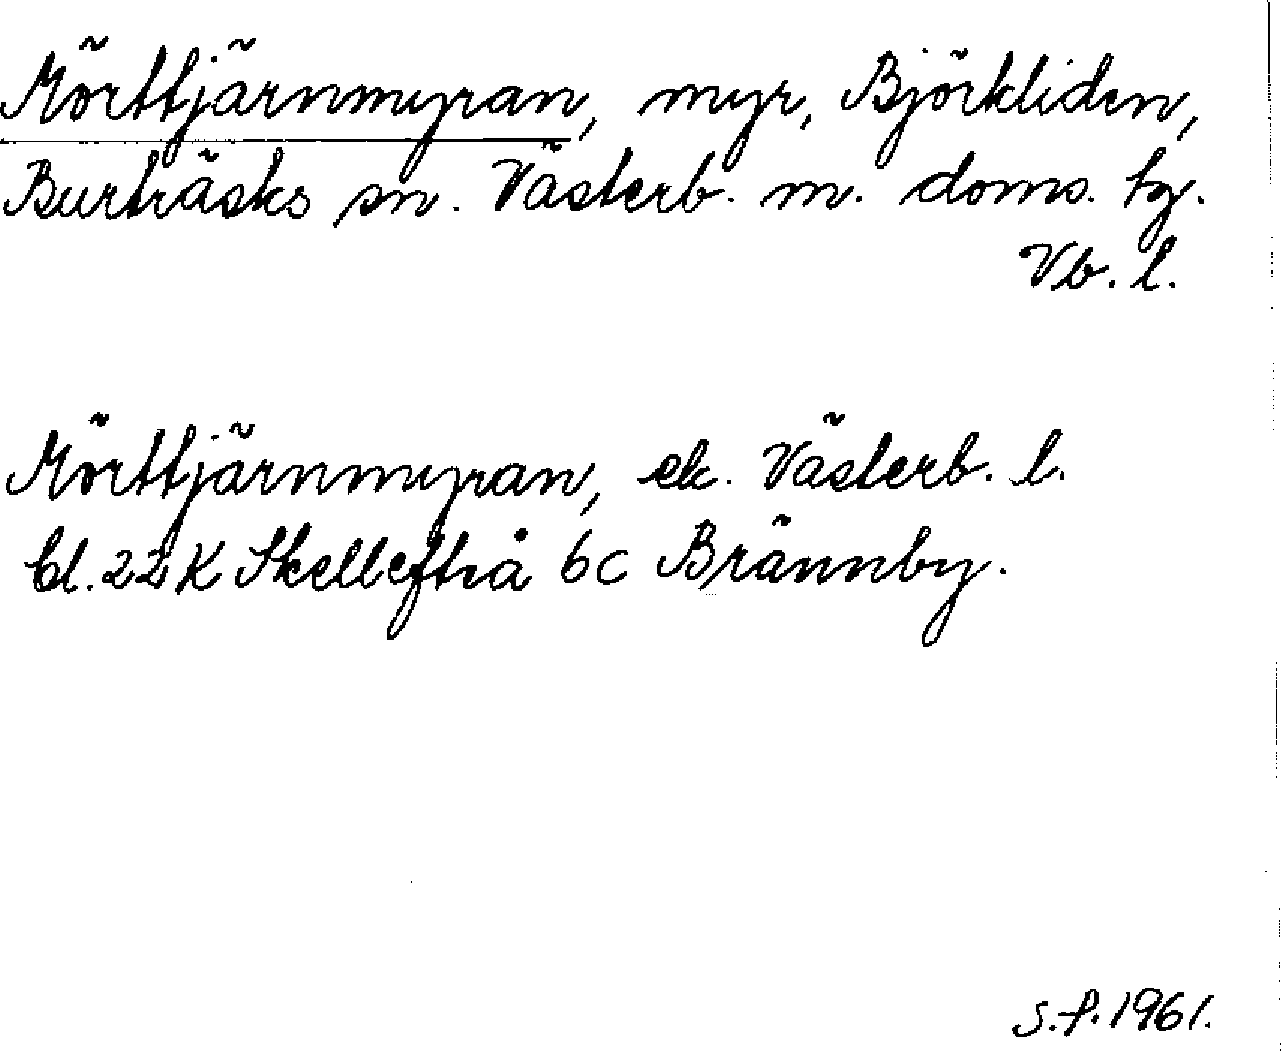 Mörttjärnmyran, myr, Björkliden,
Burträsks sn. Västerb. m. doms. tg.
Vb. l.
Mörttjärnmyran, ek. Västerb. l.
bl. 22 K Skellefteå 6c Brännby.
S.f. 1961.